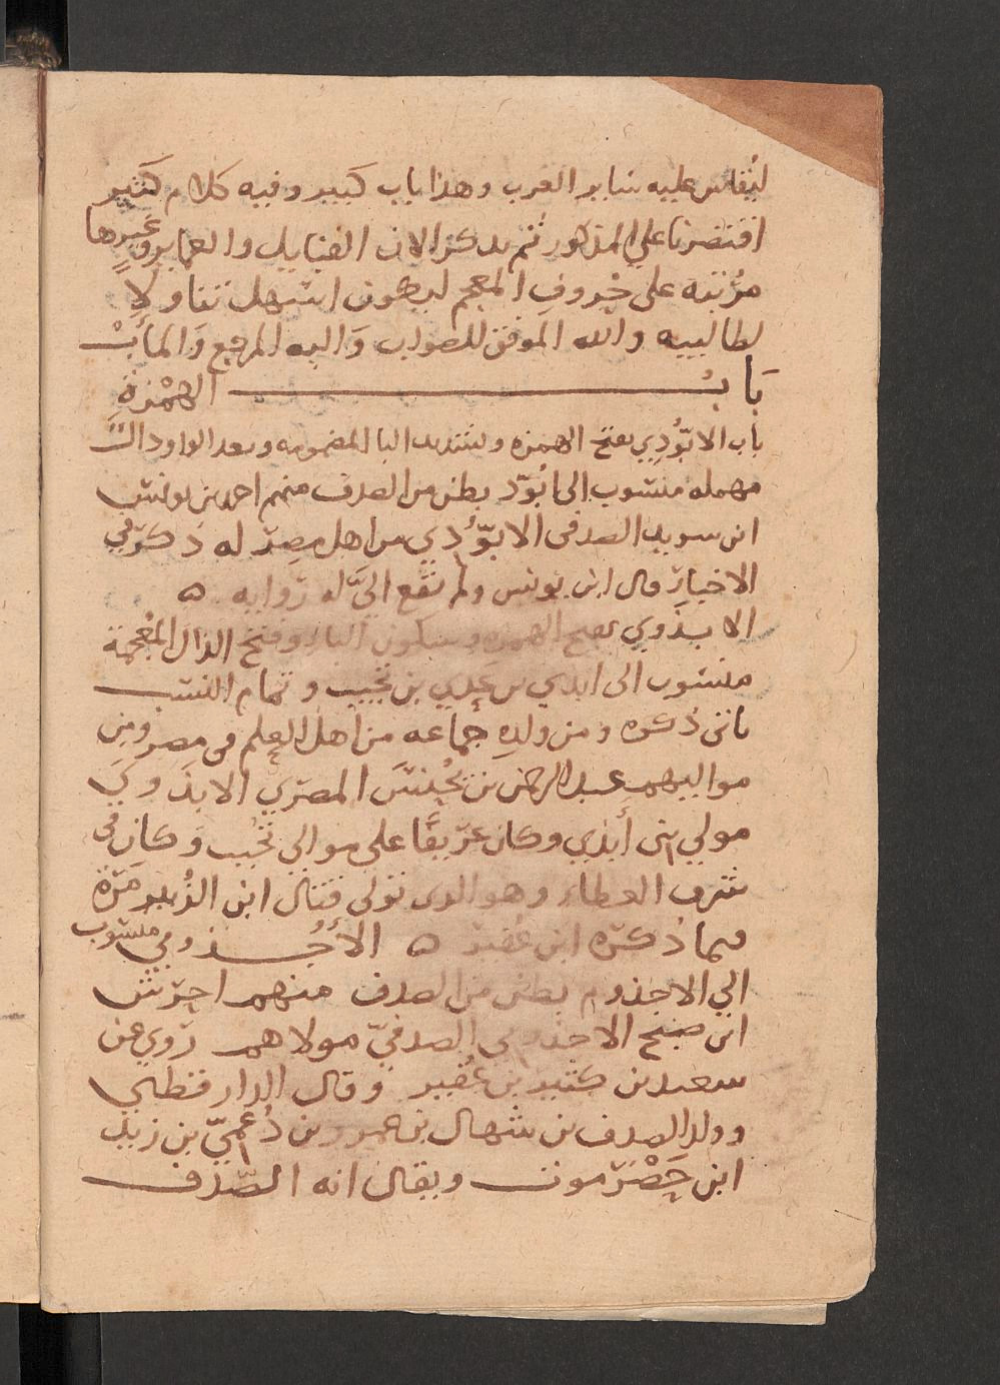 ليقاس عليه سائر العرب وهذا باب كبير وفيه كلام كثير
اقتصرنا على المذكور ثم نذكر الان القبايل والعماير وغيرها
مرتبه على حروف المعجم ليكون اسهل تناولا
لطالبيه والله الموفق للصواب وَاليه المرجع وَالمآب
بَابُ الهمْزة
باب الابّوُدِي بفتح الهمزه وتشديد البا المضمومه وبعد الواو دال
مهمله منسوب الى ابُوّد بطن من الصدف منهم احمد بن يونس
ابن سويد الصدفى الابوّدي من اهل مصر له ذكر في
الاخبار قال ابن يونس ولم تقع اليَّ له روايه ه
الابذَوي بفتح الهمزه وسكون الباء وفتح الذال المعْجمة
منسوب الى ابذي بن عدي بن تجيب وتمام النسب
ياتى ذكره ومن ولدِه جماعه من اهل العلم فى مصر ومن
مواليهم عبد الرحمن بن يُحنّسَ المصري الابذَوي
مولي بنى أبذي وكان عرّيفًا علي موالي تجُيب وَكان في
شرف العطاء وهو الذى تولى قتال ابن الزُبير مَرّة
فيما ذكره ابن عُفير ه الأُجُذومي منسوب
الي الاجذوم بطن من الصدف منهم
ابن صبح الاجذومى الصدفيّ مولاهم رَوي عن
سعيد بن كثير بن عُفير وقال الدار قطني
وولد الصدف بن شهال بن عمرو بن دُعْميّ بن زيد
ابن حَضْرَموت ويقال انه الصّدف